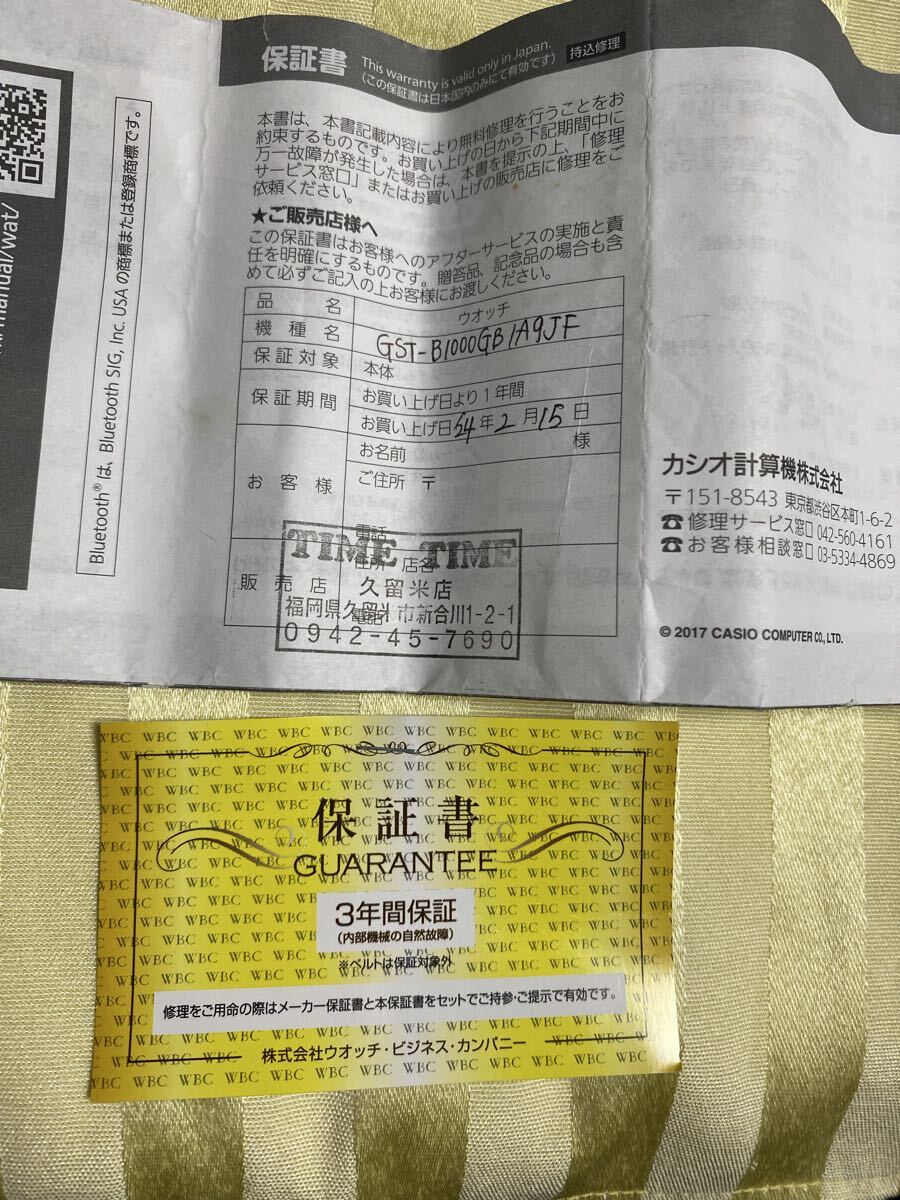 保証書
This warranty is valid only in Japan.
(この保証書は日本国内のみにて有効です)
持込修理
本書は、本書記載内容により無料修理を行うことをお
約束するものです。お買い上げの日から下記期間中に
万一故障が発生した場合は、本書を提示の上、「修理
サービス窓口」またはお買い上げの販売店に修理をご
依頼ください。
★ご販売店様へ
この保証書はお客様へのアフターサービスの実施と責
任を明確にするものです。贈答品、記念品の場合も含
めて必ずご記入の上お客様にお渡しください。
品名 ウオッチ
機種名 GST-B1000GB1A9JF
保証対象 本体
保証期間 お買い上げ日より1年間
お買い上げ日 年2月15日
お客様 お名前 様
ご住所 〒
電話
販売店 店名
電話
TIME TIME
久留米店
福岡県久留米市新合川1-2-1
0942-45-7690
manual/wat/
Bluetooth®は、Bluetooth SIG, Inc. USA の商標または登録商標です。
カシオ計算機株式会社
〒151-8543 東京都渋谷区本町1-6-2
☎修理サービス窓口 042-560-4161
☎お客様相談窓口 03-5334-4869
© 2017 CASIO COMPUTER CO., LTD.
保証書
GUARANTEE
3年間保証
(内部機械の自然故障)
※ベルトは保証対象外
修理をご用命の際はメーカー保証書と本保証書をセットでご持参・ご提示で有効です。
株式会社ウオッチ・ビジネス・カンパニー
WBC